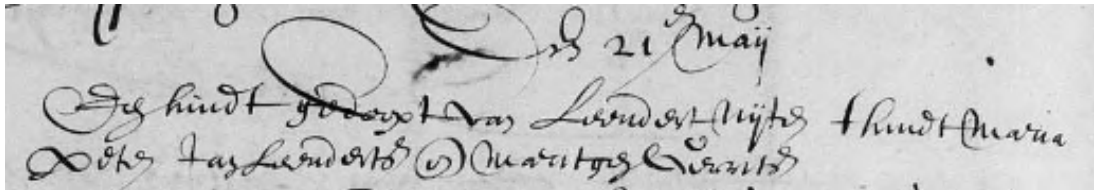 Den 21 Maij
Een kindt gedoopt van Leendert Tijten t kindt Maria
Peten Jan Leenderts en Maritgen Gerrits